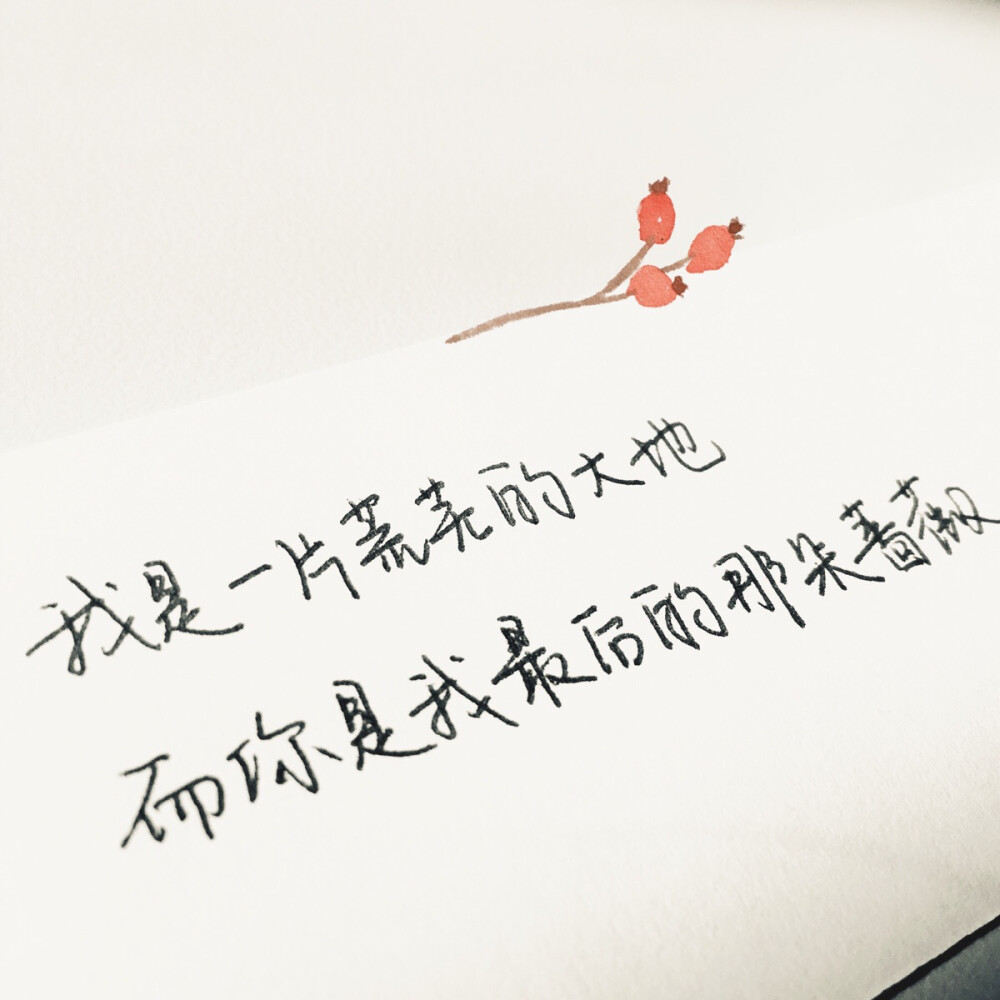 我是一片荒芜的大地
而你是我最后的那朵蔷薇